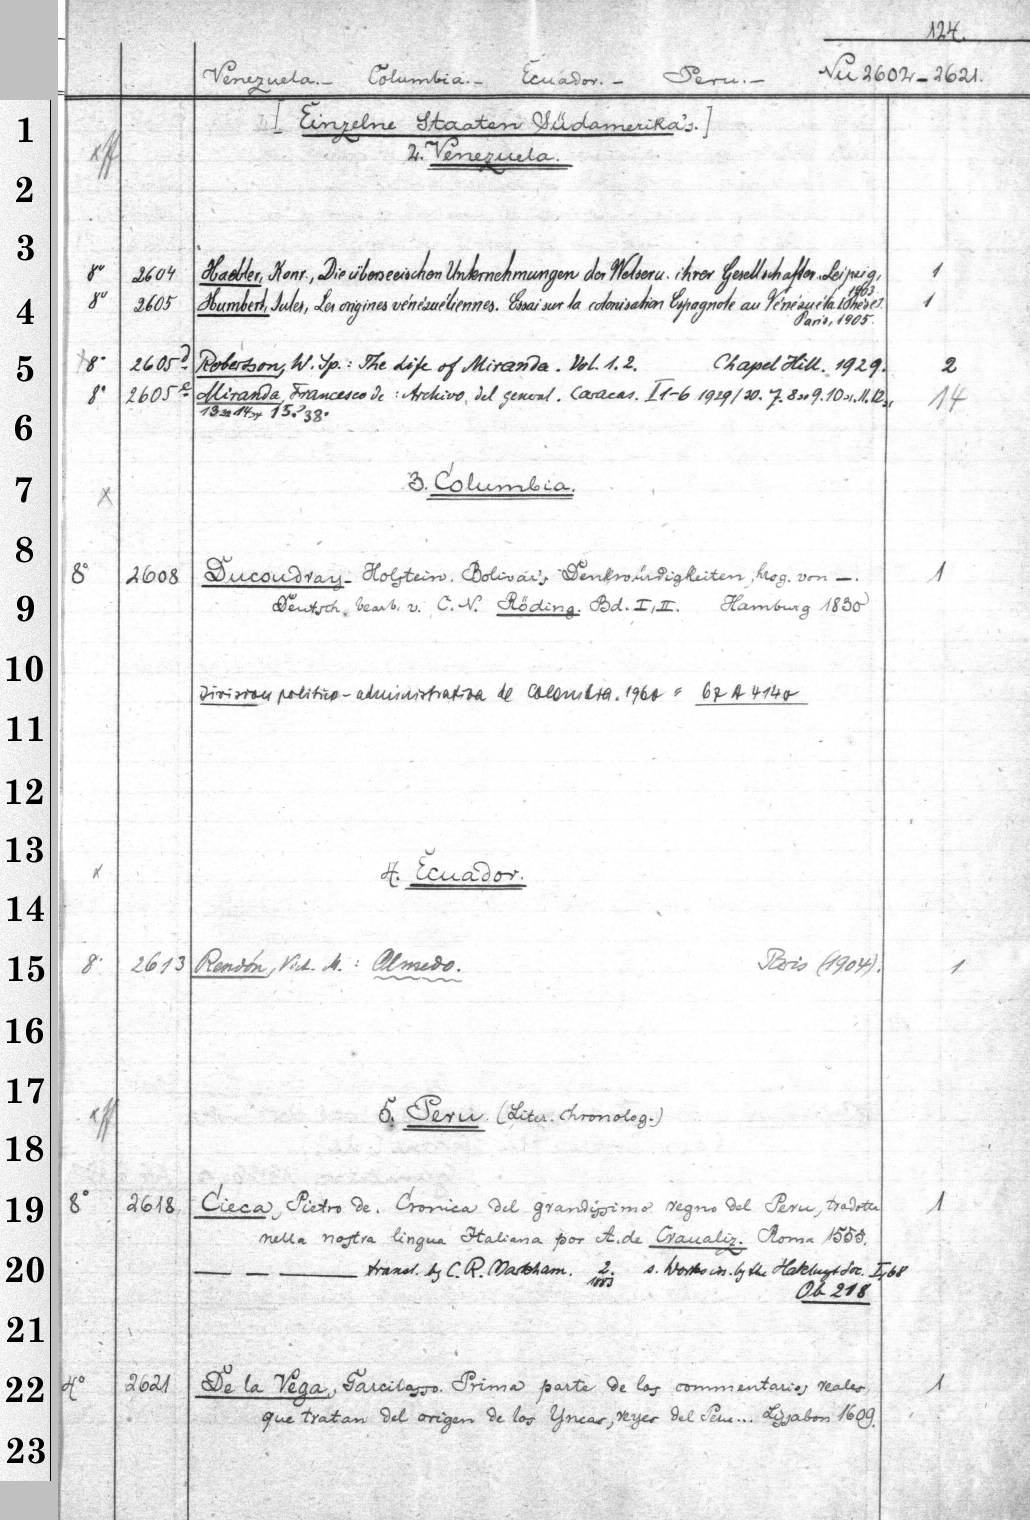 124.
Venezuela.- Columbia.- Ecuador.- Peru.- Nu 2602-2621.
1
[Einzelne Staaten Südamerika's.]
2. Venezuela.
2
3
8° 2604 Haebler, Konr., Die überseeischen Unternehmungen der Welser u. ihrer Gesellschafter. Leipzig, 1903. 1
4
8° 2605 Humbert, Jules, Les origines vénézuéliennes. Essai sur la colonisation Espagnole au Vénézuéla. (Thèse) 1
Paris, 1905.
5
8° 2605 d Robertson, W. Sp.: The Life of Miranda. Vol. 1. 2. Chapel Hill. 1929. 2
8° 2605 e Miranda, Francesco de: Archivo del general. Caracas. I 1-6 1929/30. 7. 8 9. 10 11. 12 14
6
13 14 15. 38.
7
3. Columbia.
8
8° 2608 Ducoudray-Holstein. Bolivar's Denkwürdigkeiten, hrsg. von -. 1
9
Deutsch bearb. v. C. N. Röding. Bd. I, II. Hamburg 1830
10
Division politico-administrativa de Colombia. 1960 = 67 A 4140
11
12
13
4. Ecuador.
14
15
8° 2613 Rendón, Vict. M.: Olmedo. Paris (1904). 1
16
17
5. Peru. (Liter. chronolog.)
18
19
8° 2618 Cieca, Pietro de. Cronica del grandissimo regno del Peru, tradotta 1
nella nostra lingua Italiana por A. de Craualiz. Roma 1555.
20
— — — transl. by C. R. Markham. 2. 1883 s. Works iss. by the Hakluyt Soc. I, 68
Ob 218
21
22
4° 2621 De la Vega, Garcilasso. Prima parte de los commentarios reales, 1
que tratan del origen de los Yncas, reyes del Peru... Lissabon 1609.
23